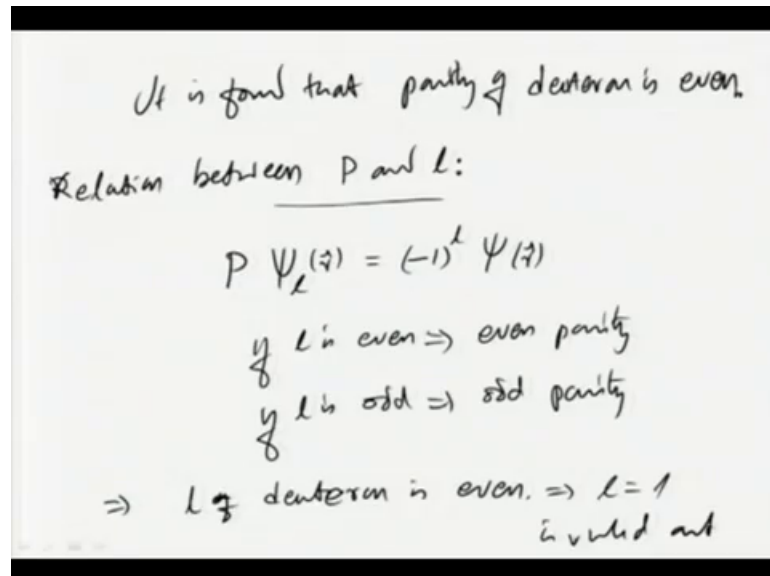 It is found that parity of deuteron is even.
Relation between P and l:
P ψ_l(r⃗) = (-1)^l ψ(r⃗)
If l is even ⇒ even parity
If l is odd ⇒ odd parity
⇒ l of deuteron is even. ⇒ l = 1
is ruled out